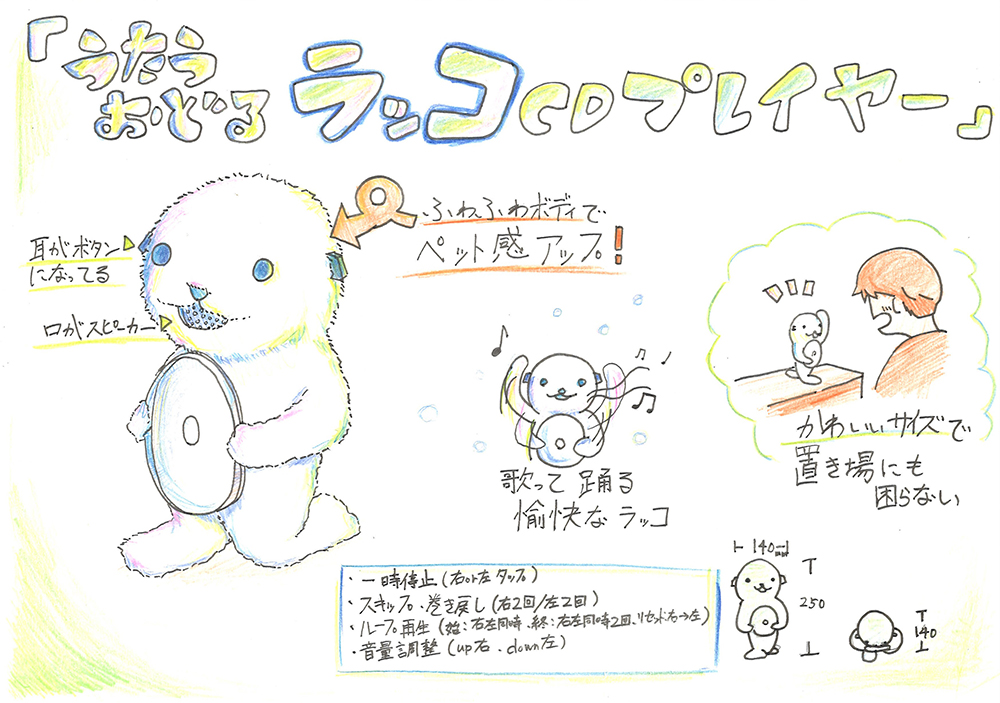 「うたう
おどる
ラッコCDプレイヤー」
ふわふわボディで
ペット感アップ!
耳がボタン
になってる
口がスピーカー
歌って踊る
愉快なラッコ
かわいいサイズで
置き場にも
困らない
・一時停止(右or左タップ)
・スキップ・巻き戻し(右2回/左2回)
・ループ再生(始:右左同時、終:右左同時2回、リセット右→左)
・音量調整(up右、down左)
140
250
140